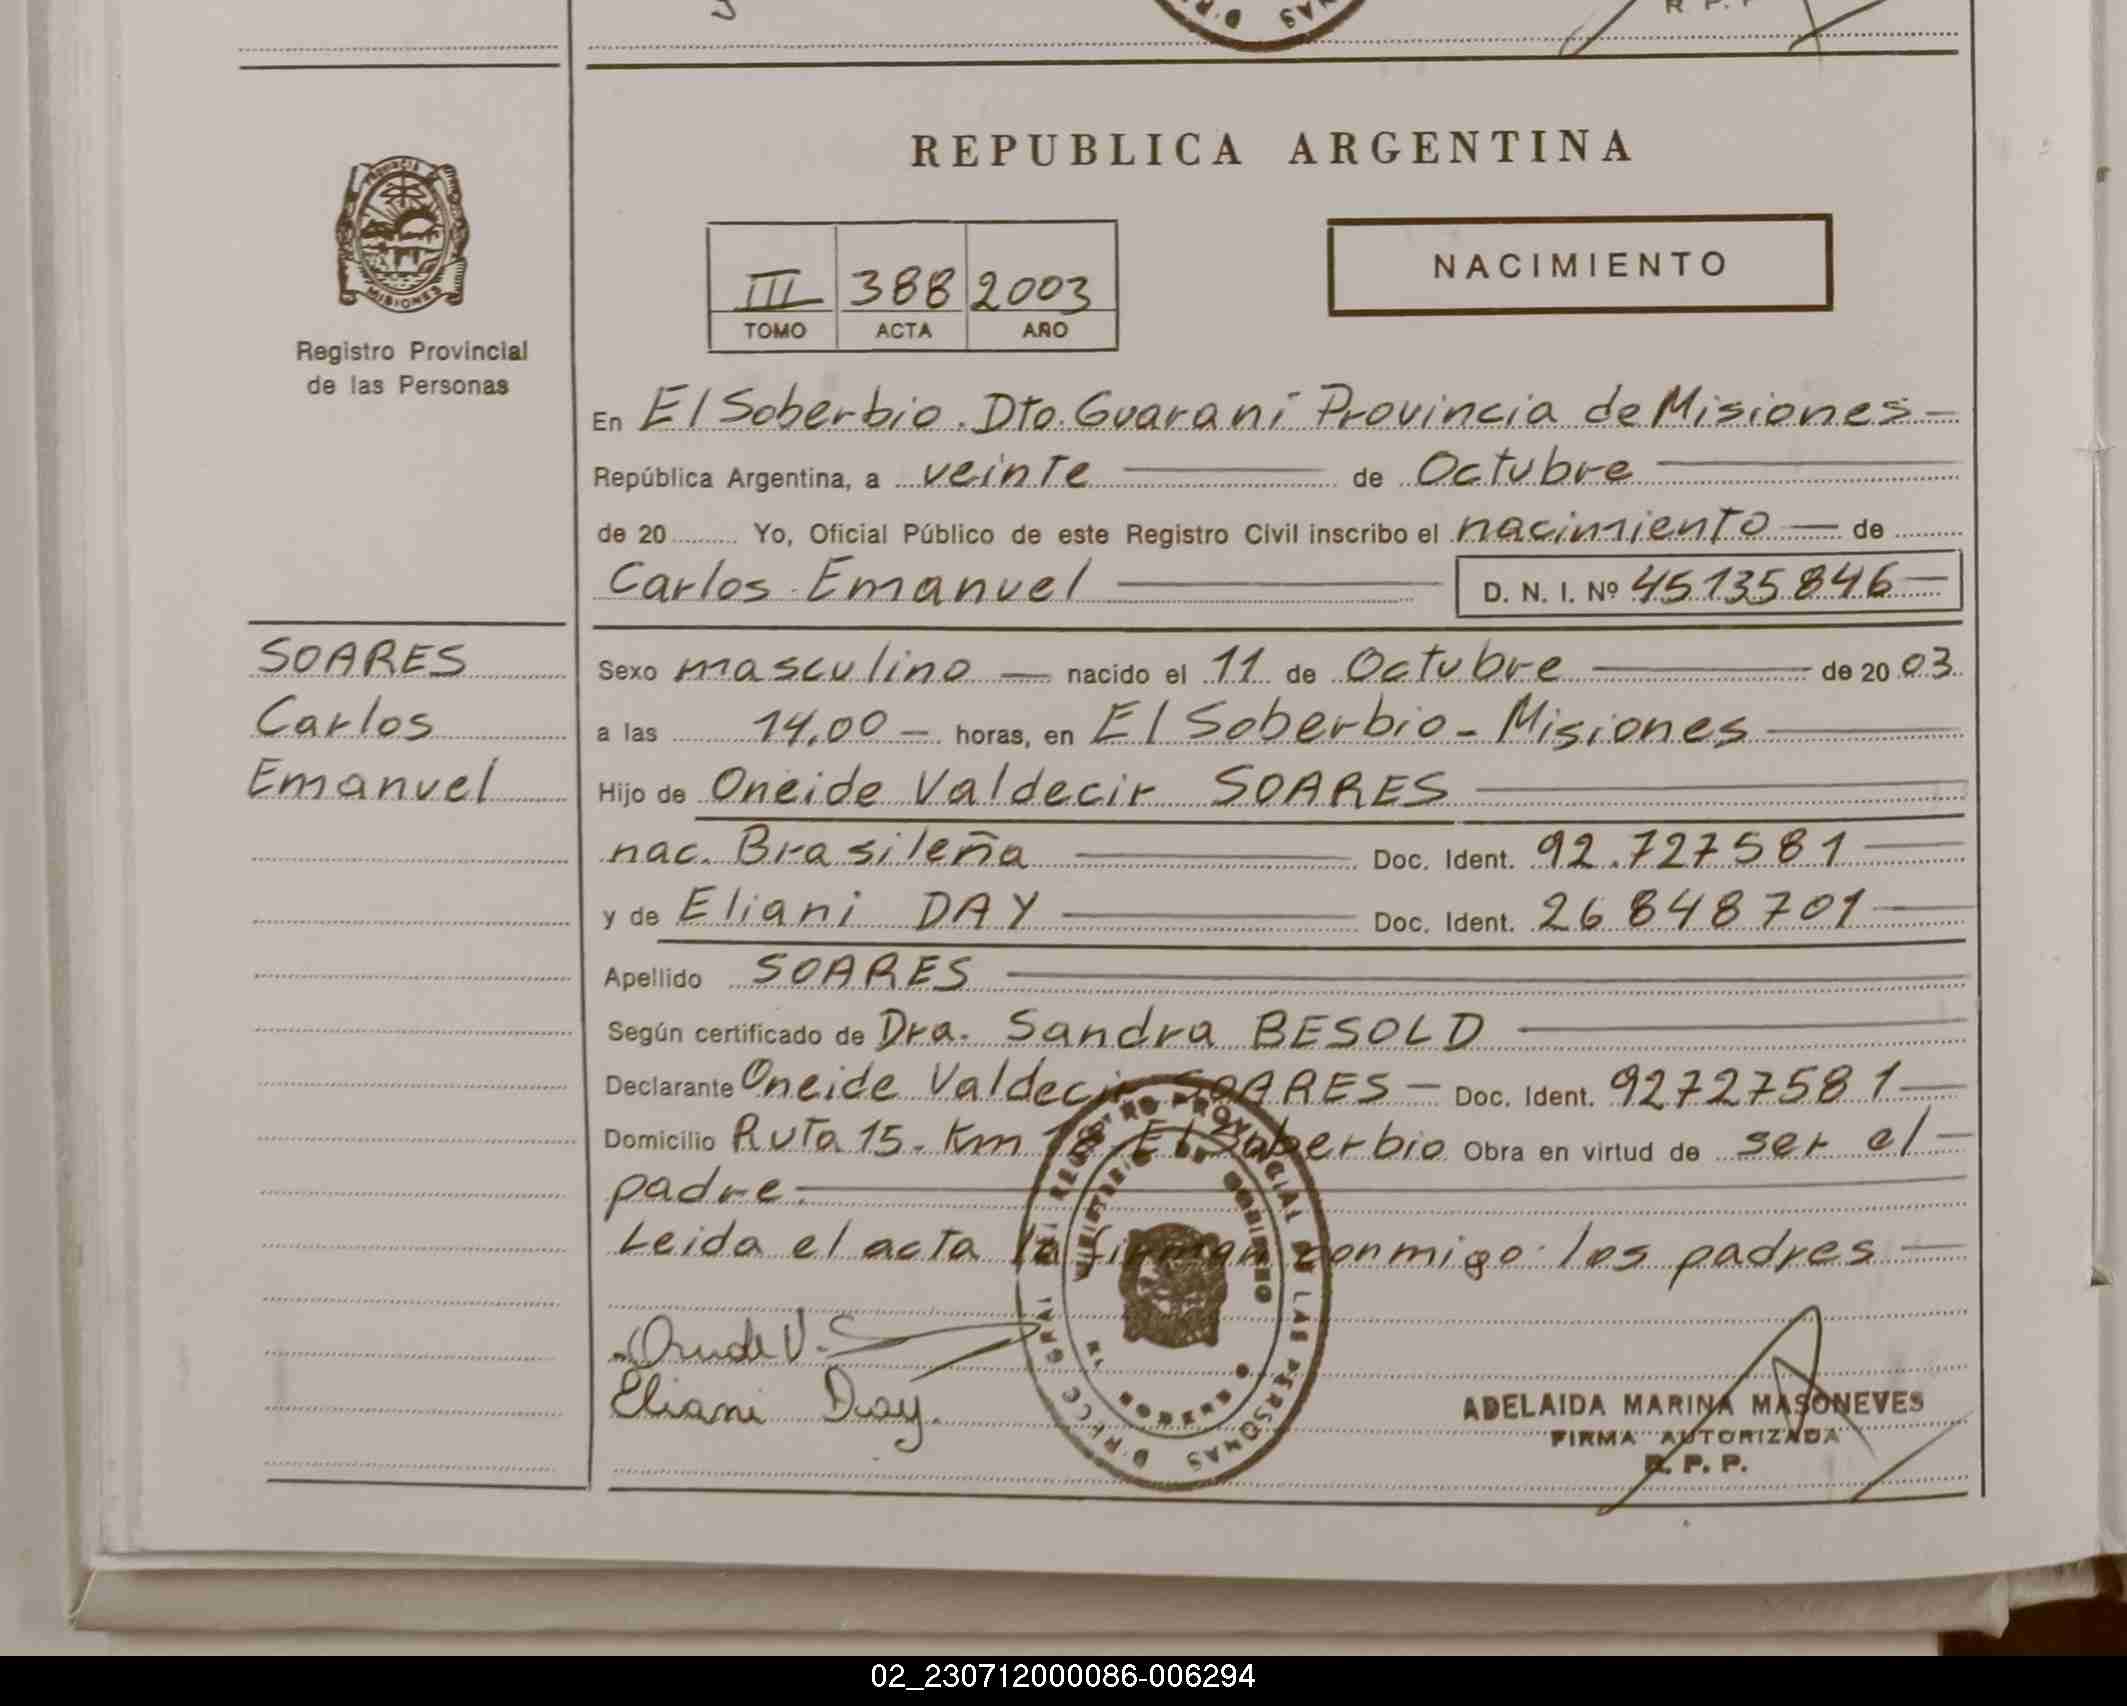 REPUBLICA ARGENTINA
PROVINCIA DE
MISIONES
Registro Provincial
de las Personas
NACIMIENTO
III 388 2003
TOMO ACTA AÑO
En El Soberbio. Dto. Guaraní Provincia de Misiones
República Argentina, a veinte de Octubre
de 20 Yo, Oficial Público de este Registro Civil inscribo el nacimiento de
Carlos Emanuel D. N. I. Nº 45135846
SOARES
Carlos
Emanuel
Sexo masculino nacido el 11 de Octubre de 2003
a las 14,00 horas, en El Soberbio - Misiones
Hijo de Oneide Valdecir SOARES
nac. Brasileña Doc. Ident. 92.727581
y de Eliani DAY Doc. Ident. 26848701
Apellido SOARES
Según certificado de Dra. Sandra BESOLD
Declarante Oneide Valdecir SOARES Doc. Ident. 92727581
Domicilio Ruta 15. Km 18 El Soberbio Obra en virtud de ser el
padre.
Leida el acta la firman conmigo los padres
REGISTRO PROVINCIAL DE LAS PERSONAS
MINISTERIO DE GOBIERNO
EL SOBERBIO
Eliani Day.
ADELAIDA MARINA MASONEVES
FIRMA AUTORIZADA
R. P. P.
02_230712000086-006294